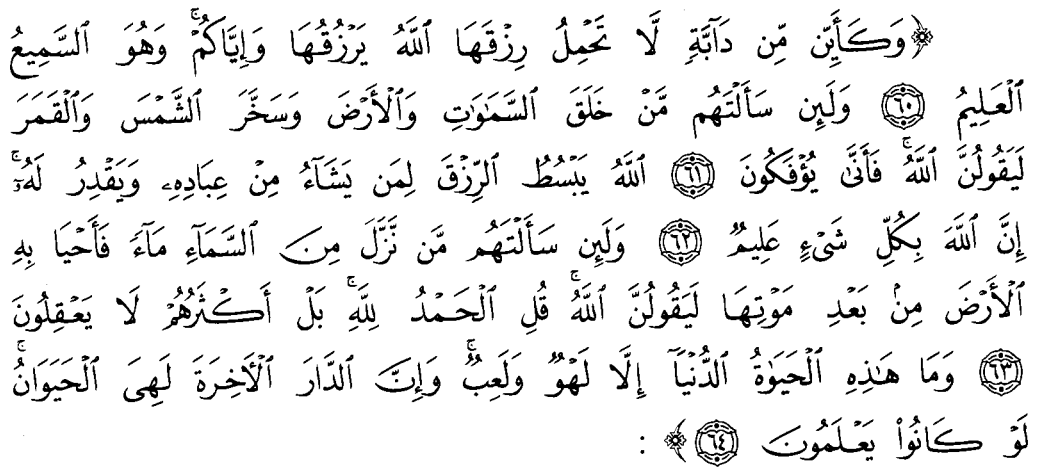 ﴿وَكَأَيِّن مِّن دَآبَّةٍ لَّا تَحْمِلُ رِزْقَهَا ٱللَّهُ يَرْزُقُهَا وَإِيَّاكُمْۚ وَهُوَ ٱلسَّمِيعُ
ٱلْعَلِيمُ ۝٦٠ وَلَئِن سَأَلْتَهُم مَّنْ خَلَقَ ٱلسَّمَٰوَٰتِ وَٱلْأَرْضَ وَسَخَّرَ ٱلشَّمْسَ وَٱلْقَمَرَ
لَيَقُولُنَّ ٱللَّهُۖ فَأَنَّىٰ يُؤْفَكُونَ ۝٦١ ٱللَّهُ يَبْسُطُ ٱلرِّزْقَ لِمَن يَشَآءُ مِنْ عِبَادِهِۦ وَيَقْدِرُ لَهُۥٓۚ
إِنَّ ٱللَّهَ بِكُلِّ شَىْءٍ عَلِيمٌ ۝٦٢ وَلَئِن سَأَلْتَهُم مَّن نَّزَّلَ مِنَ ٱلسَّمَآءِ مَآءً فَأَحْيَا بِهِ
ٱلْأَرْضَ مِنۢ بَعْدِ مَوْتِهَا لَيَقُولُنَّ ٱللَّهُۚ قُلِ ٱلْحَمْدُ لِلَّهِۚ بَلْ أَكْثَرُهُمْ لَا يَعْقِلُونَ
۝٦٣ وَمَا هَٰذِهِ ٱلْحَيَوٰةُ ٱلدُّنْيَآ إِلَّا لَهْوٌ وَلَعِبٌۚ وَإِنَّ ٱلدَّارَ ٱلْأَخِرَةَ لَهِىَ ٱلْحَيَوَانُۚ
لَوْ كَانُوا۟ يَعْلَمُونَ ۝٦٤﴾ :